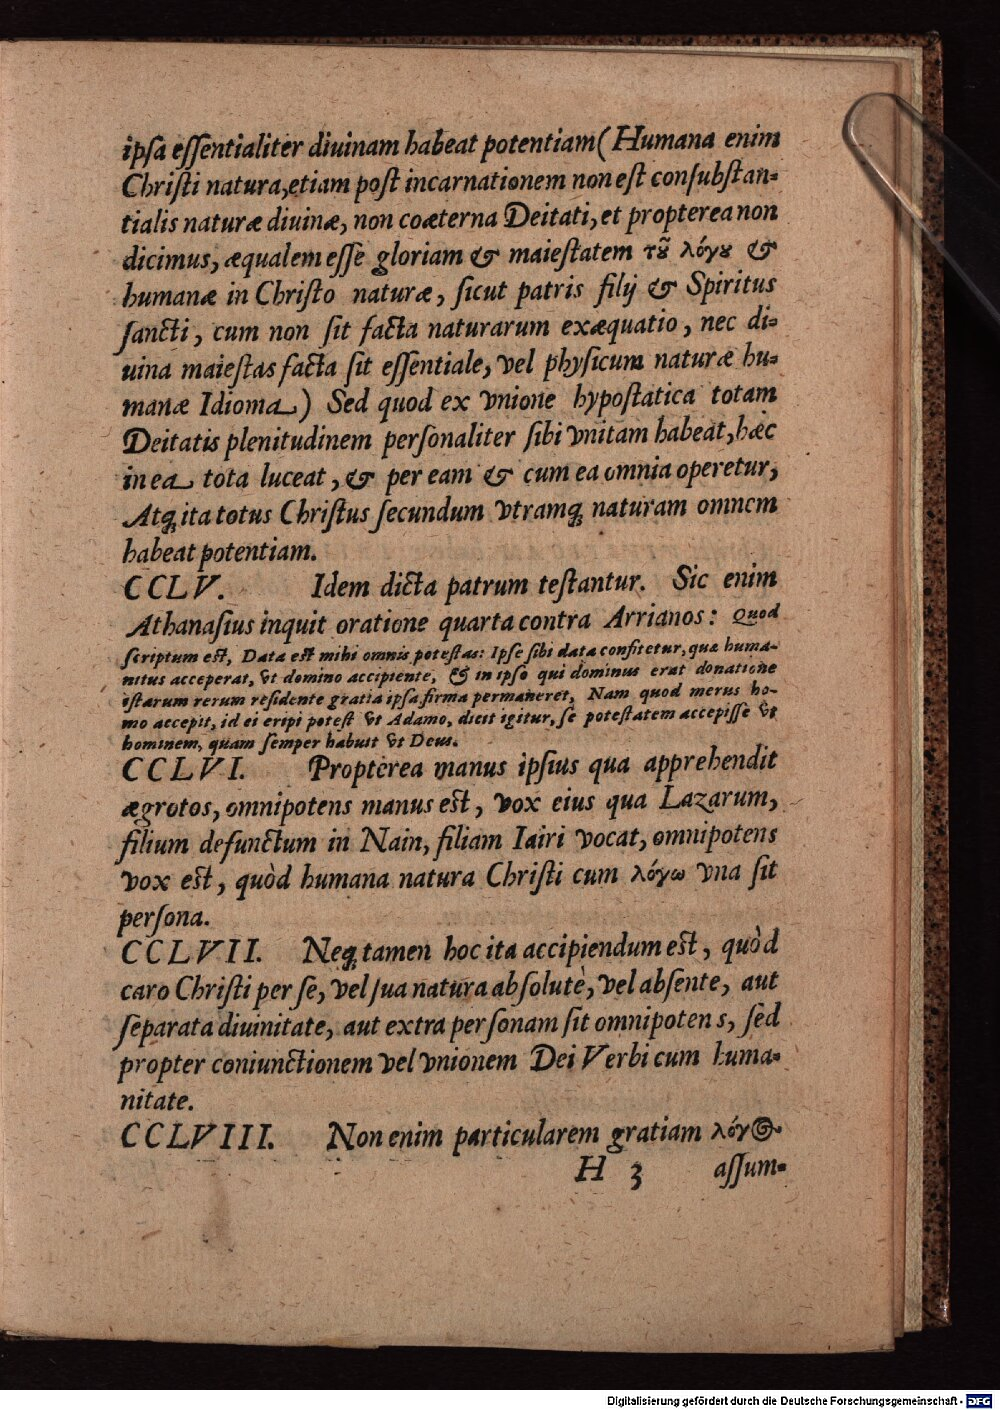 ipſa eſſentialiter diuinam habeat potentiam (Humana enim
Chriſti natura, etiam poſt incarnationem non eſt conſubſtan-
tialis naturæ diuinæ, non coæterna Deitati, et propterea non
dicimus, æqualem eſſe gloriam & maieſtatem τȣ͂ λόγȣ &
humanæ in Chriſto naturæ, ſicut patris filij & Spiritus
ſancti, cum non ſit facta naturarum exæquatio, nec di-
uina maieſtas facta ſit eſſentiale, vel phyſicum naturæ hu-
manæ Idioma) Sed quod ex vnione hypoſtatica totam
Deitatis plenitudinem perſonaliter ſibi vnitam habeat, hæc
in ea tota luceat, & per eam & cum ea omnia operetur,
Atq; ita totus Chriſtus ſecundum vtramq; naturam omnem
habeat potentiam.
CCLV. Idem dicta patrum teſtantur. Sic enim
Athanaſius inquit oratione quarta contra Arrianos: Quod
ſcriptum eſt, Data eſt mihi omnis poteſtas: Ipſe ſibi data confitetur, quæ huma-
nitus acceperat, vt domino accipiente, & in ipſo qui dominus erat donatione
iſtarum rerum reſidente gratia ipſa firma permaneret, Nam quod merus ho-
mo accepit, id ei eripi poteſt vt Adamo, dicit igitur, ſe poteſtatem accepiſſe vt
hominem, quam ſemper habuit vt Deus.
CCLVI. Propterea manus ipſius qua apprehendit
ægrotos, omnipotens manus eſt, vox eius qua Lazarum,
filium defunctum in Nain, filiam Iairi vocat, omnipotens
vox eſt, quòd humana natura Chriſti cum λόγω vna ſit
perſona.
CCLVII. Neq; tamen hoc ita accipiendum eſt, quòd
caro Chriſti per ſe, vel ſua natura abſolutè, vel abſente, aut
ſeparata diuinitate, aut extra perſonam ſit omnipotens, ſed
propter coniunctionem vel vnionem Dei Verbi cum huma-
nitate.
CCLVIII. Non enim particularem gratiam λόγος
H 3 aſſum-
Digitalisierung gefördert durch die Deutsche Forschungsgemeinschaft - DFG